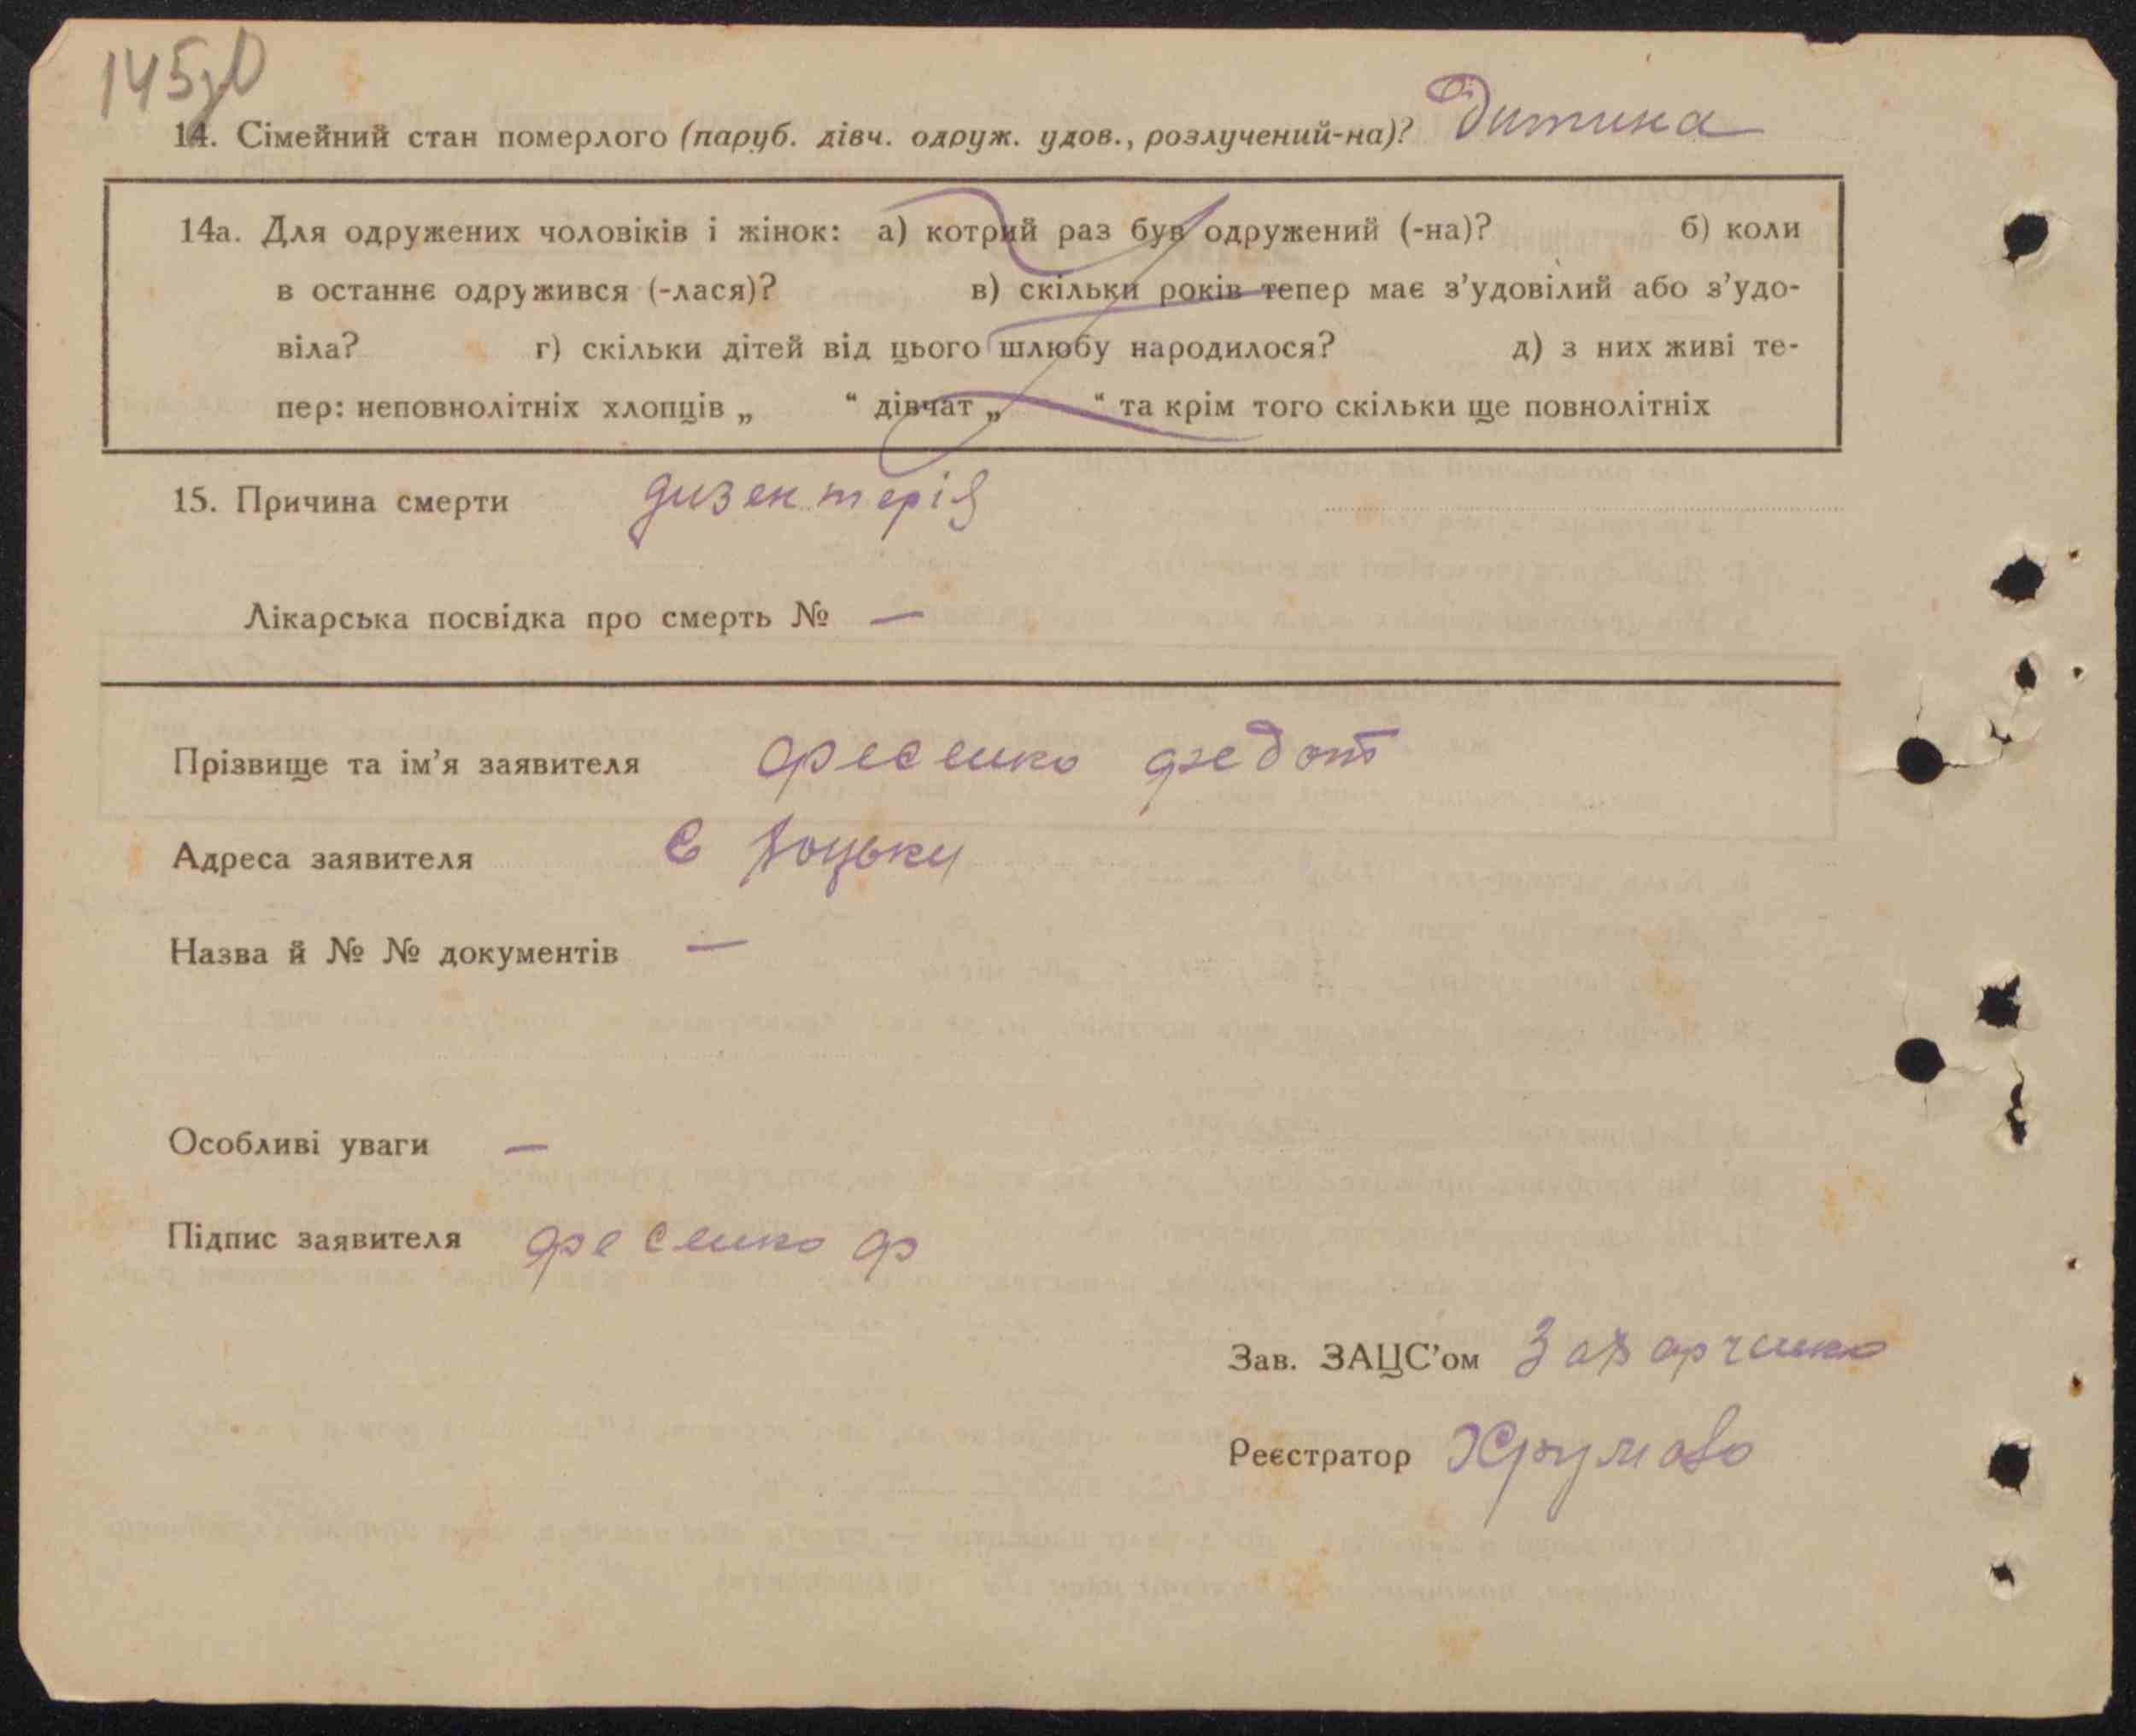 145зв
14. Сімейний стан померлого (паруб. дівч. одруж. удов., розлучений-на)? Дитина
14а. Для одружених чоловіків і жінок: а) котрий раз був одружений (-на)? б) коли
в останнє одружився (-лася)? в) скільки років тепер має з'удовілий або з'удо-
віла? г) скільки дітей від цього шлюбу народилося? д) з них живі те-
пер: неповнолітніх хлопців „ “ дівчат „ “ та крім того скільки ще повнолітніх
15. Причина смерти дизентерія
Лікарська посвідка про смерть № —
Прізвище та ім'я заявителя Фесенко Федот
Адреса заявителя с
Назва й № № документів —
Особливі уваги —
Підпис заявителя Фесенко Ф
Зав. ЗАЦС'ом Захарченко
Реєстратор